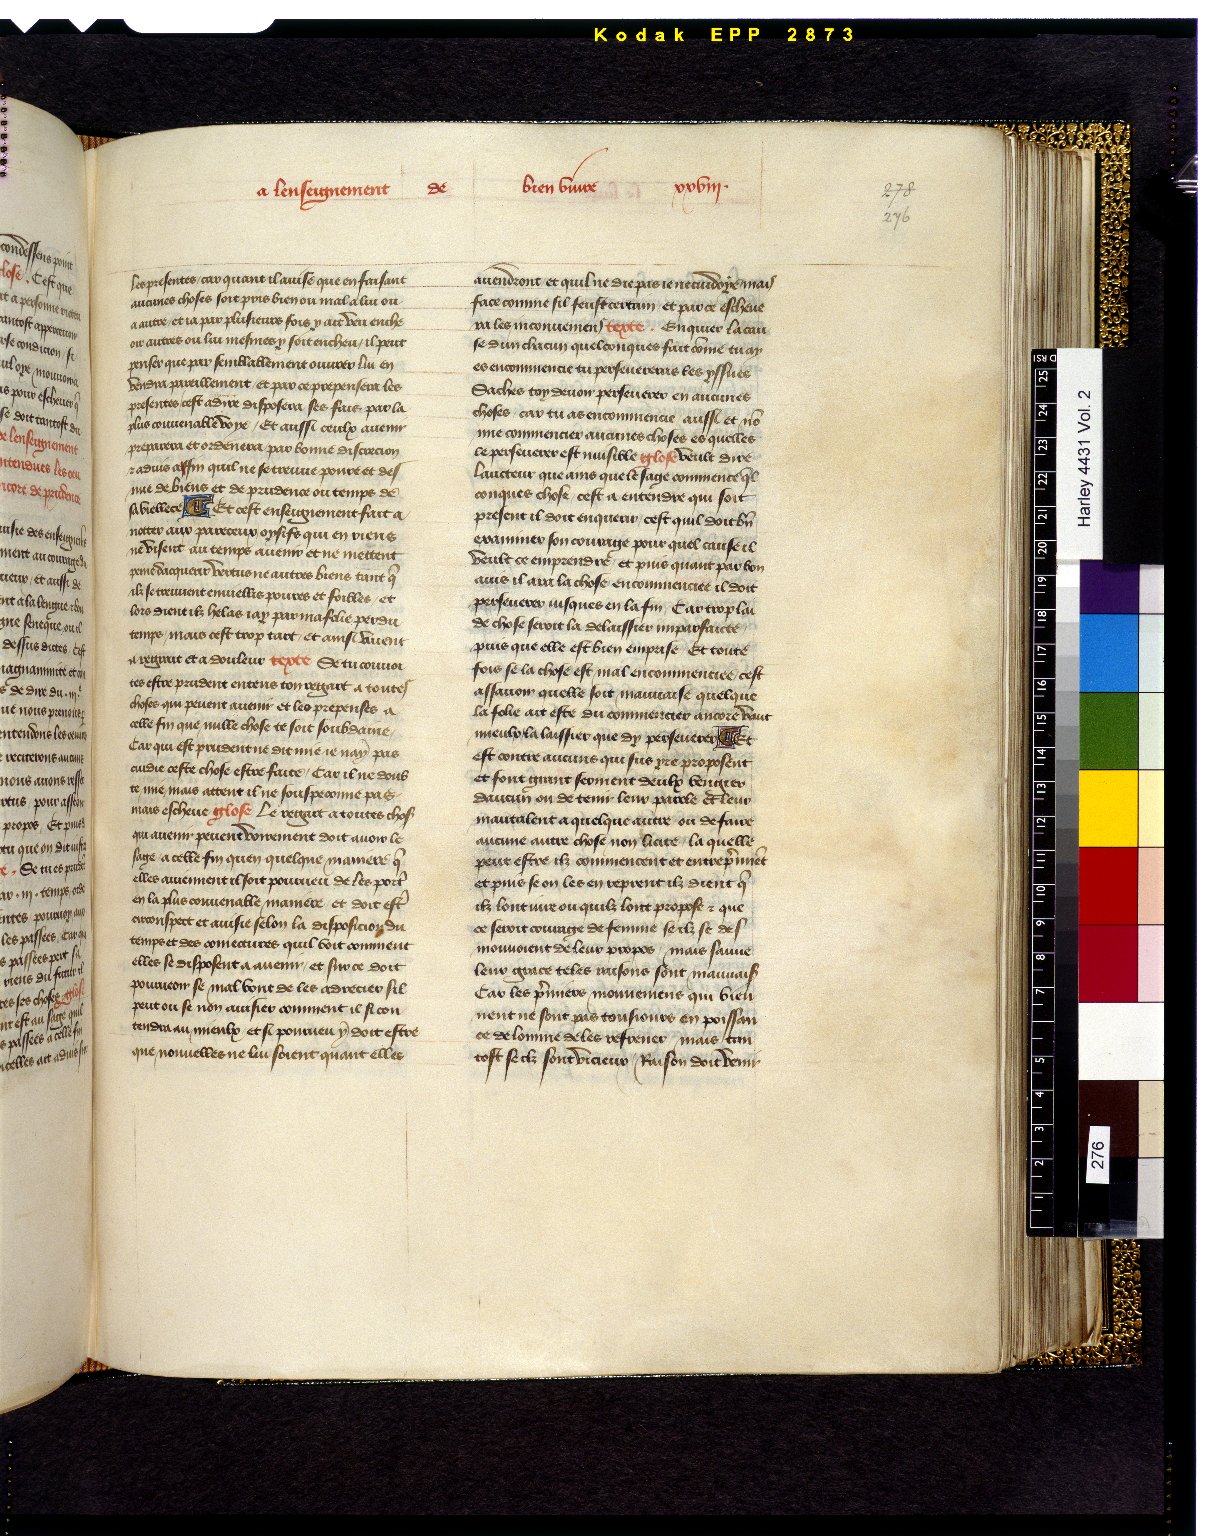 Kodak EPP 2873
a lenseignement de bien vivre xxviii.
278
276
les presentes / car quant il auise que en faisant
aucunes choses soit pris bien ou mal a lui ou
a autre et ia par plusieurs fois y ait veu enche
oir autres ou lui mesmes y soit encheu / il peut
penser que par semblablement ouurer lui en
vendra pareillement / et par ce prepensera les
presentes cest adire disposera ses fais par la
plus conuenable voye / Et aussi ceulx auenir
preparera et ordenera par bonne discrecion
z aduis affin quil ne se treuue poure et des
nue de biens et de prudence ou temps de
sa viellece Et cest enseignement fait a
notter aux pareceux oysifs qui en riens
ne visent au temps auenir et ne mettent
peine dacquerir vertus ne autres biens tant q̄
ilz se treuuent enuiellis poures et foibles et
lors dient ilz helas iay par ma folie perdu
temps / mais cest trop tart / et ainsi viuent
a regrait et a douleur texte Se tu couuoi
tes estre prudent entens ton regart a toutes
choses qui peuent auenir et les prepenses a
celle fin que nulle chose te soit soubdaine /
Car qui est prudent ne dit mie ie nay pas
cuidie ceste chose estre faite / Car il ne doub
te mie mais attent il ne souspeconne pas
mais escheue glose Le regart a toutes chos
qui auenir peuent voirement doit auoir le
sage a celle fin quen quelque maniere q̄
elles auiennent il soit pourueu de les port
en la plus conuenable maniere et doit est
circonspect et auisie selon la disposicion du
temps et des coniectures quil voit comment
elles se disposent a auenir / et sur ce doit
pourueoir se mal vont de les adrecier sil
peut ou se non auisier comment il si con
tendra au mieulx et si pourueu y doit estre
que nouuelles ne lui soient quant elles
auendront et quil ne die pas ie ne cuidoye mais
face comme sil feust certain et par ce escheue
ra les inconueniens texte . Enquier la cau
se dun chacun quelconques fait cōme tu ay
es encommencie tu perseuereras les yssues
Saches toy deuoir perseuerer en aucunes
choses / car tu as encommencie aussi et nō
mie commencier aucunes choses es quelles
le perseuerer est nuisible glose veult dire
laucteur que ains que le sage commence q̄l
conques chose cest a entendre qui soit
present il doit enquerir / cest quil doit bn̄
examiner son courage pour quel cause il
veult ce emprendre et puis quant par bon
auis il ara la chose encommenciee il doit
perseuerer iusques en la fin / Car trop lai
de chose seroit la delaissier imparfaicte
puis que elle est bien emprise Et toute
fois se la chose est mal encommenciee cest
assauoir quelle soit mauuaise quelque
la folie ait este du commencier ancore vaut
mieulx la laissier que dy perseuerer Et
est contre aucuns qui sus yre proposent
et font grant serment deulx vengier
daucun ou de tenir leur parole et leur
mautalent a quelque autre ou de faire
aucune autre chose non licite / la quelle
peut estre ilz commencent et entrep̄nnēt
et puis se on les en reprent ilz dient q̄
ilz lont iure ou quilz lont propose z que
ce seroit courage de femme se ilz se des
mouuoient de leur propos / mais sauue
leur grace teles raisons sont mauuais
Car les p̄miers mouuemens qui vien
nent ne sont pas tousiours en poissan
ce de lomme de les refrener / mais tan
tost se ilz sont vicieux / Raison doit venir
Harley 4431 Vol. 2
276
25
24
23
22
21
20
19
18
17
16
15
14
13
12
11
10
9
8
7
5
4
3
2